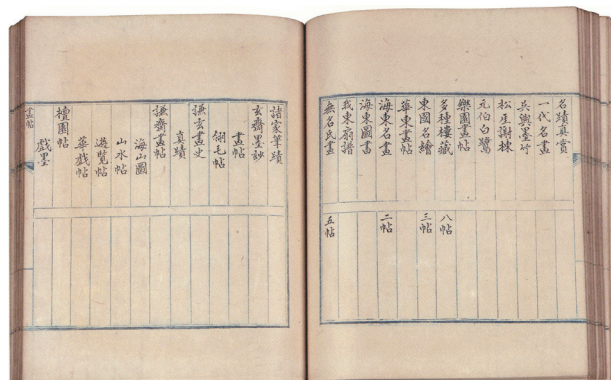 名蹟真賞
一代名畫
吳興墨竹
元伯白鷺
樂園畫帖
多種樓藏 八帖
東國名繪 三帖
華東畫帖
海東名畫 二帖
海東圖書
我東扇譜
無名氏畫 五帖
諸家筆蹟
玄齋墨妙
畫帖
翎毛帖
謙玄畫史
真蹟
謙齋畫帖
海山圖
山水帖
遊覽帖
華戲帖
檀園帖
戲墨
畫帖